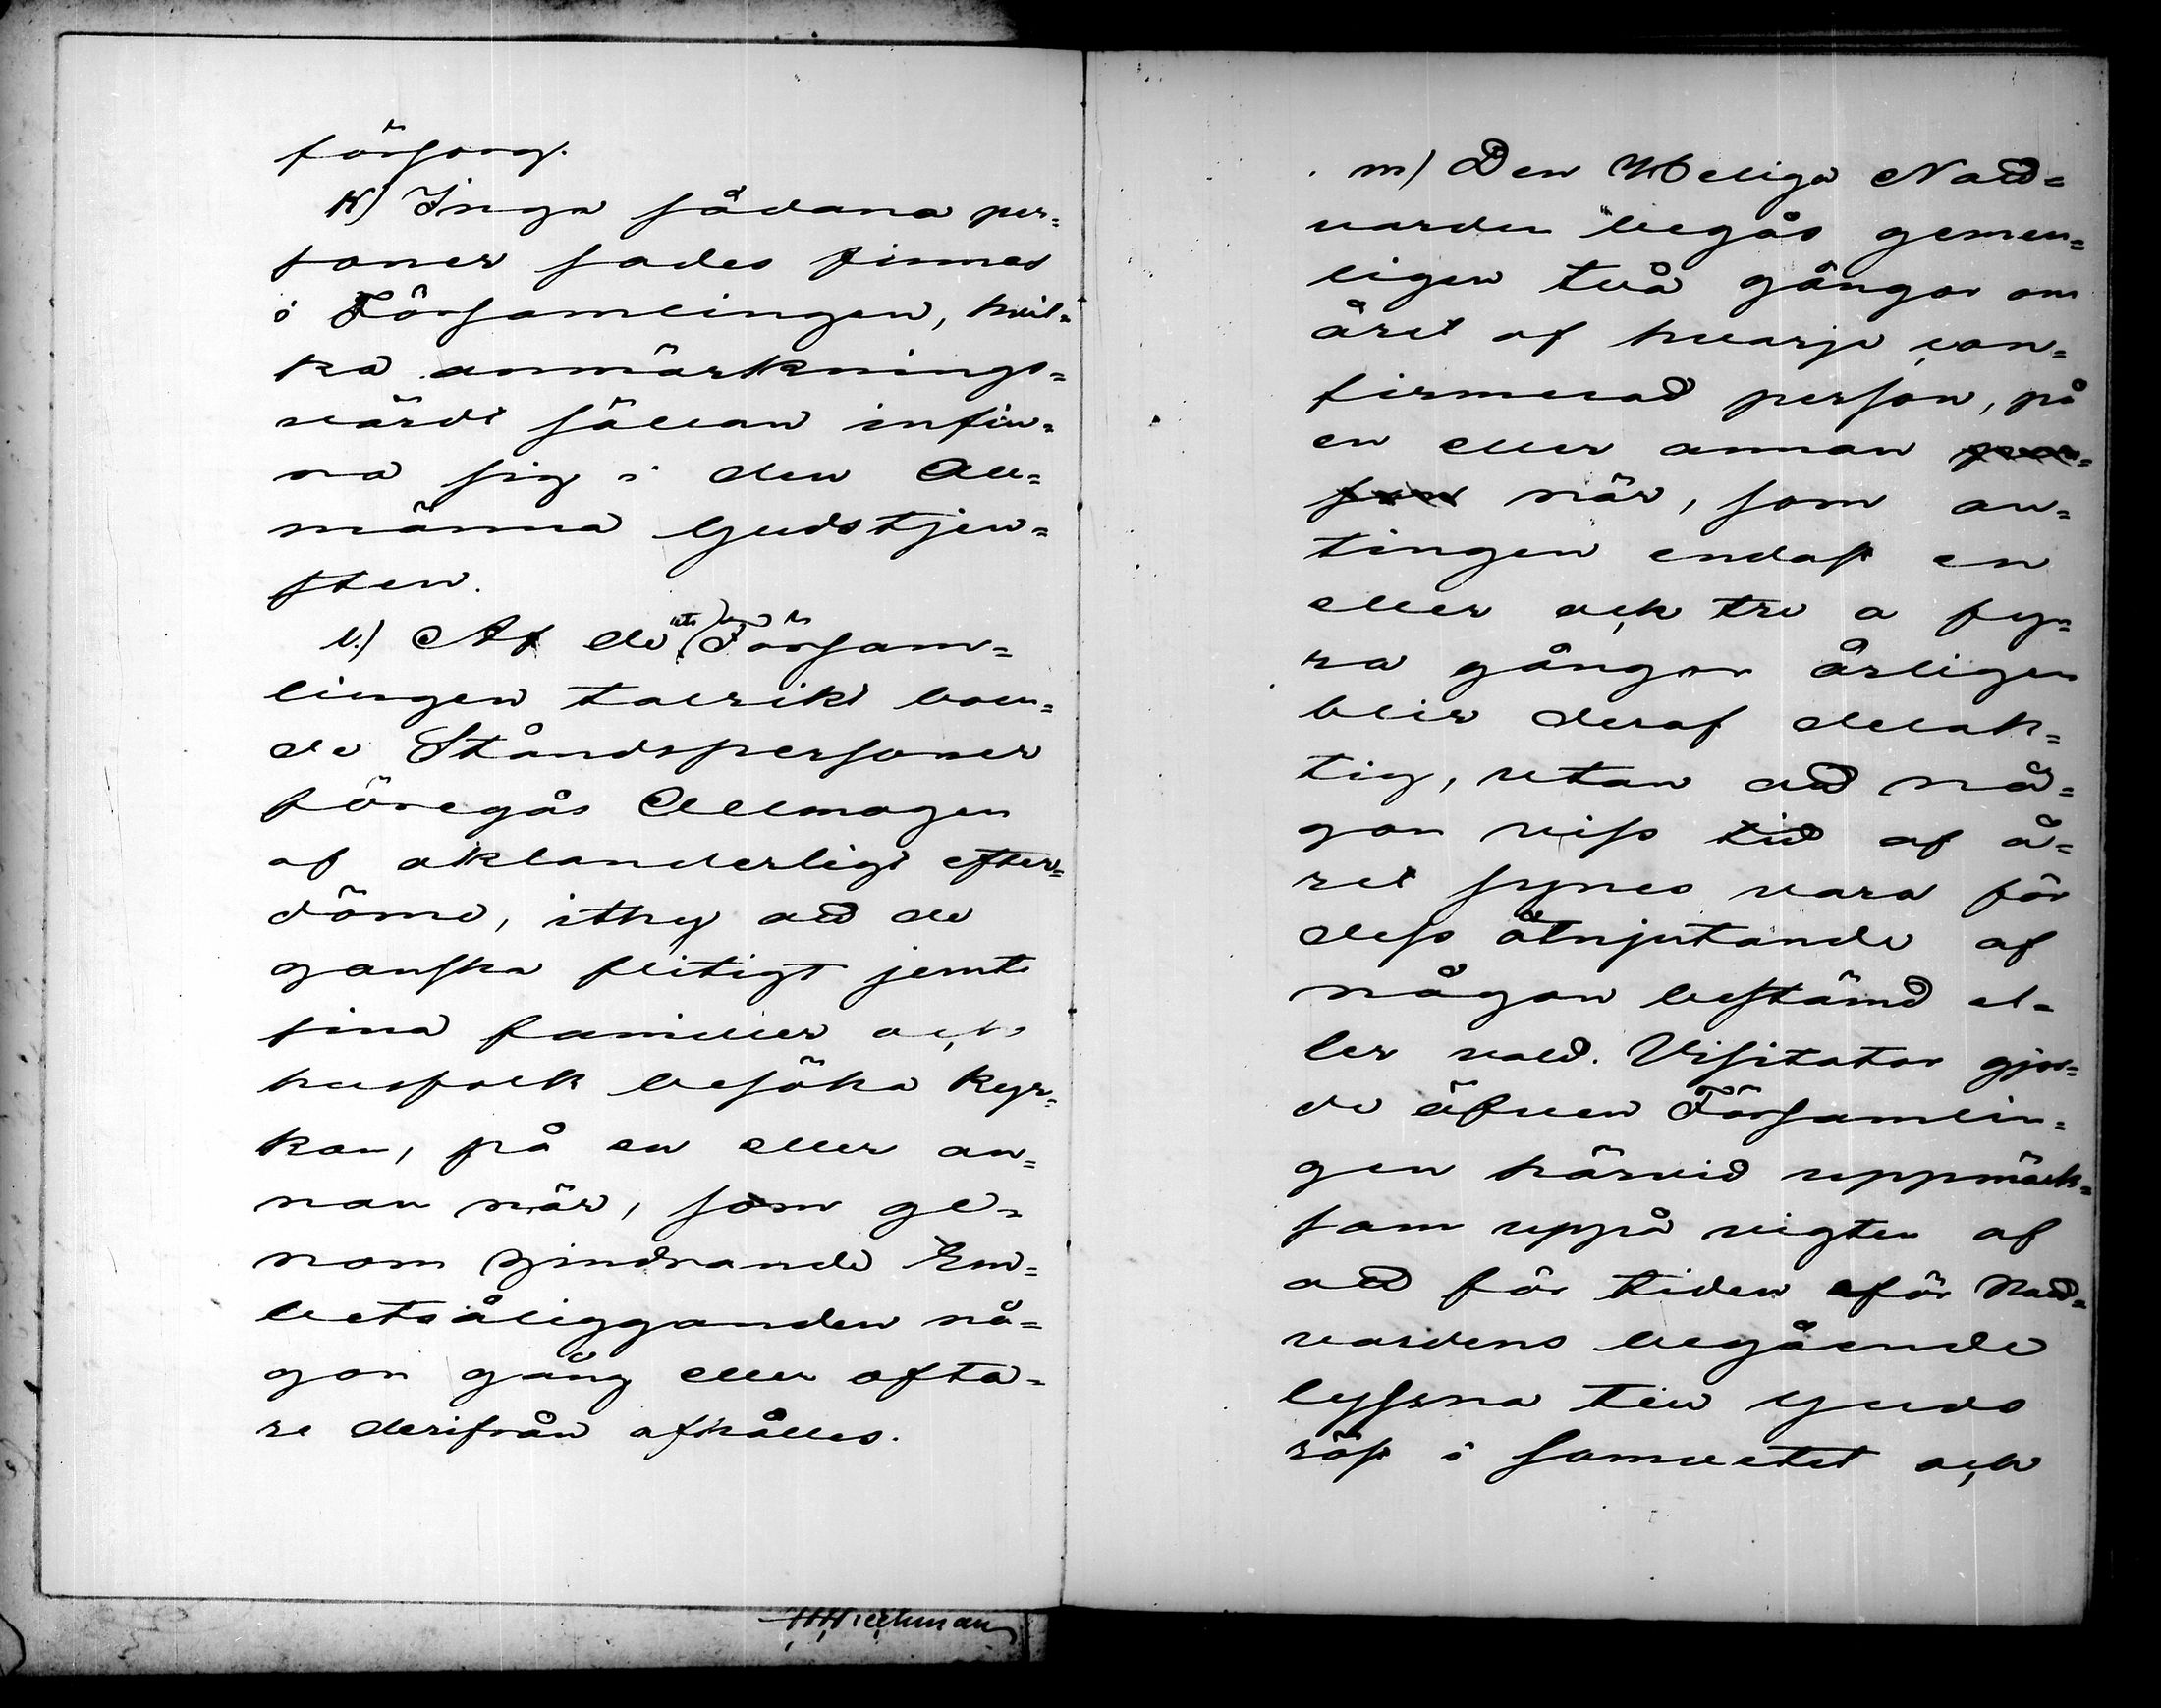 försorg.
K) Inga sådana per=
soner sades finnas
i Församlingen, hvil=
ka anmärknings=
värdt sällan infin=
na sig i den All=
männa Gudstjen=
sten.
l.) Af de uti Försam=
lingen talrikt boen=
de Ståndspersoner
föregås Allmogen
af oklanderligt efter=
döme, ithy att de
ganska flitigt jemte
sina familler och
husfolk besöka Kyr=
kan, på en eller an=
nan när, som ge=
nom hindrande Em=
betsåligganden nå=
gon gång eller ofta=
re derifrån afhålles.
m) Den Heliga Natt=
varden begås gemen=
ligen två gånger om
året af hvarje con=
firmerad person, på
en eller annan per=
son när, som an=
tingen endast en
eller ock tre a fy=
ra gånger årligen
blir deraf delak=
tig, utan att nå=
gon viss tid af å=
ret synes vara för
dess åtnjutande af
någon bestämd el=
ler vald. Visitator gjor=
de äfven Församlin=
gen härvid uppmärk=
sam uppå vigten af
att för tiden för Natt=
vardens begående
lyssna till Guds
röst i samvetet och